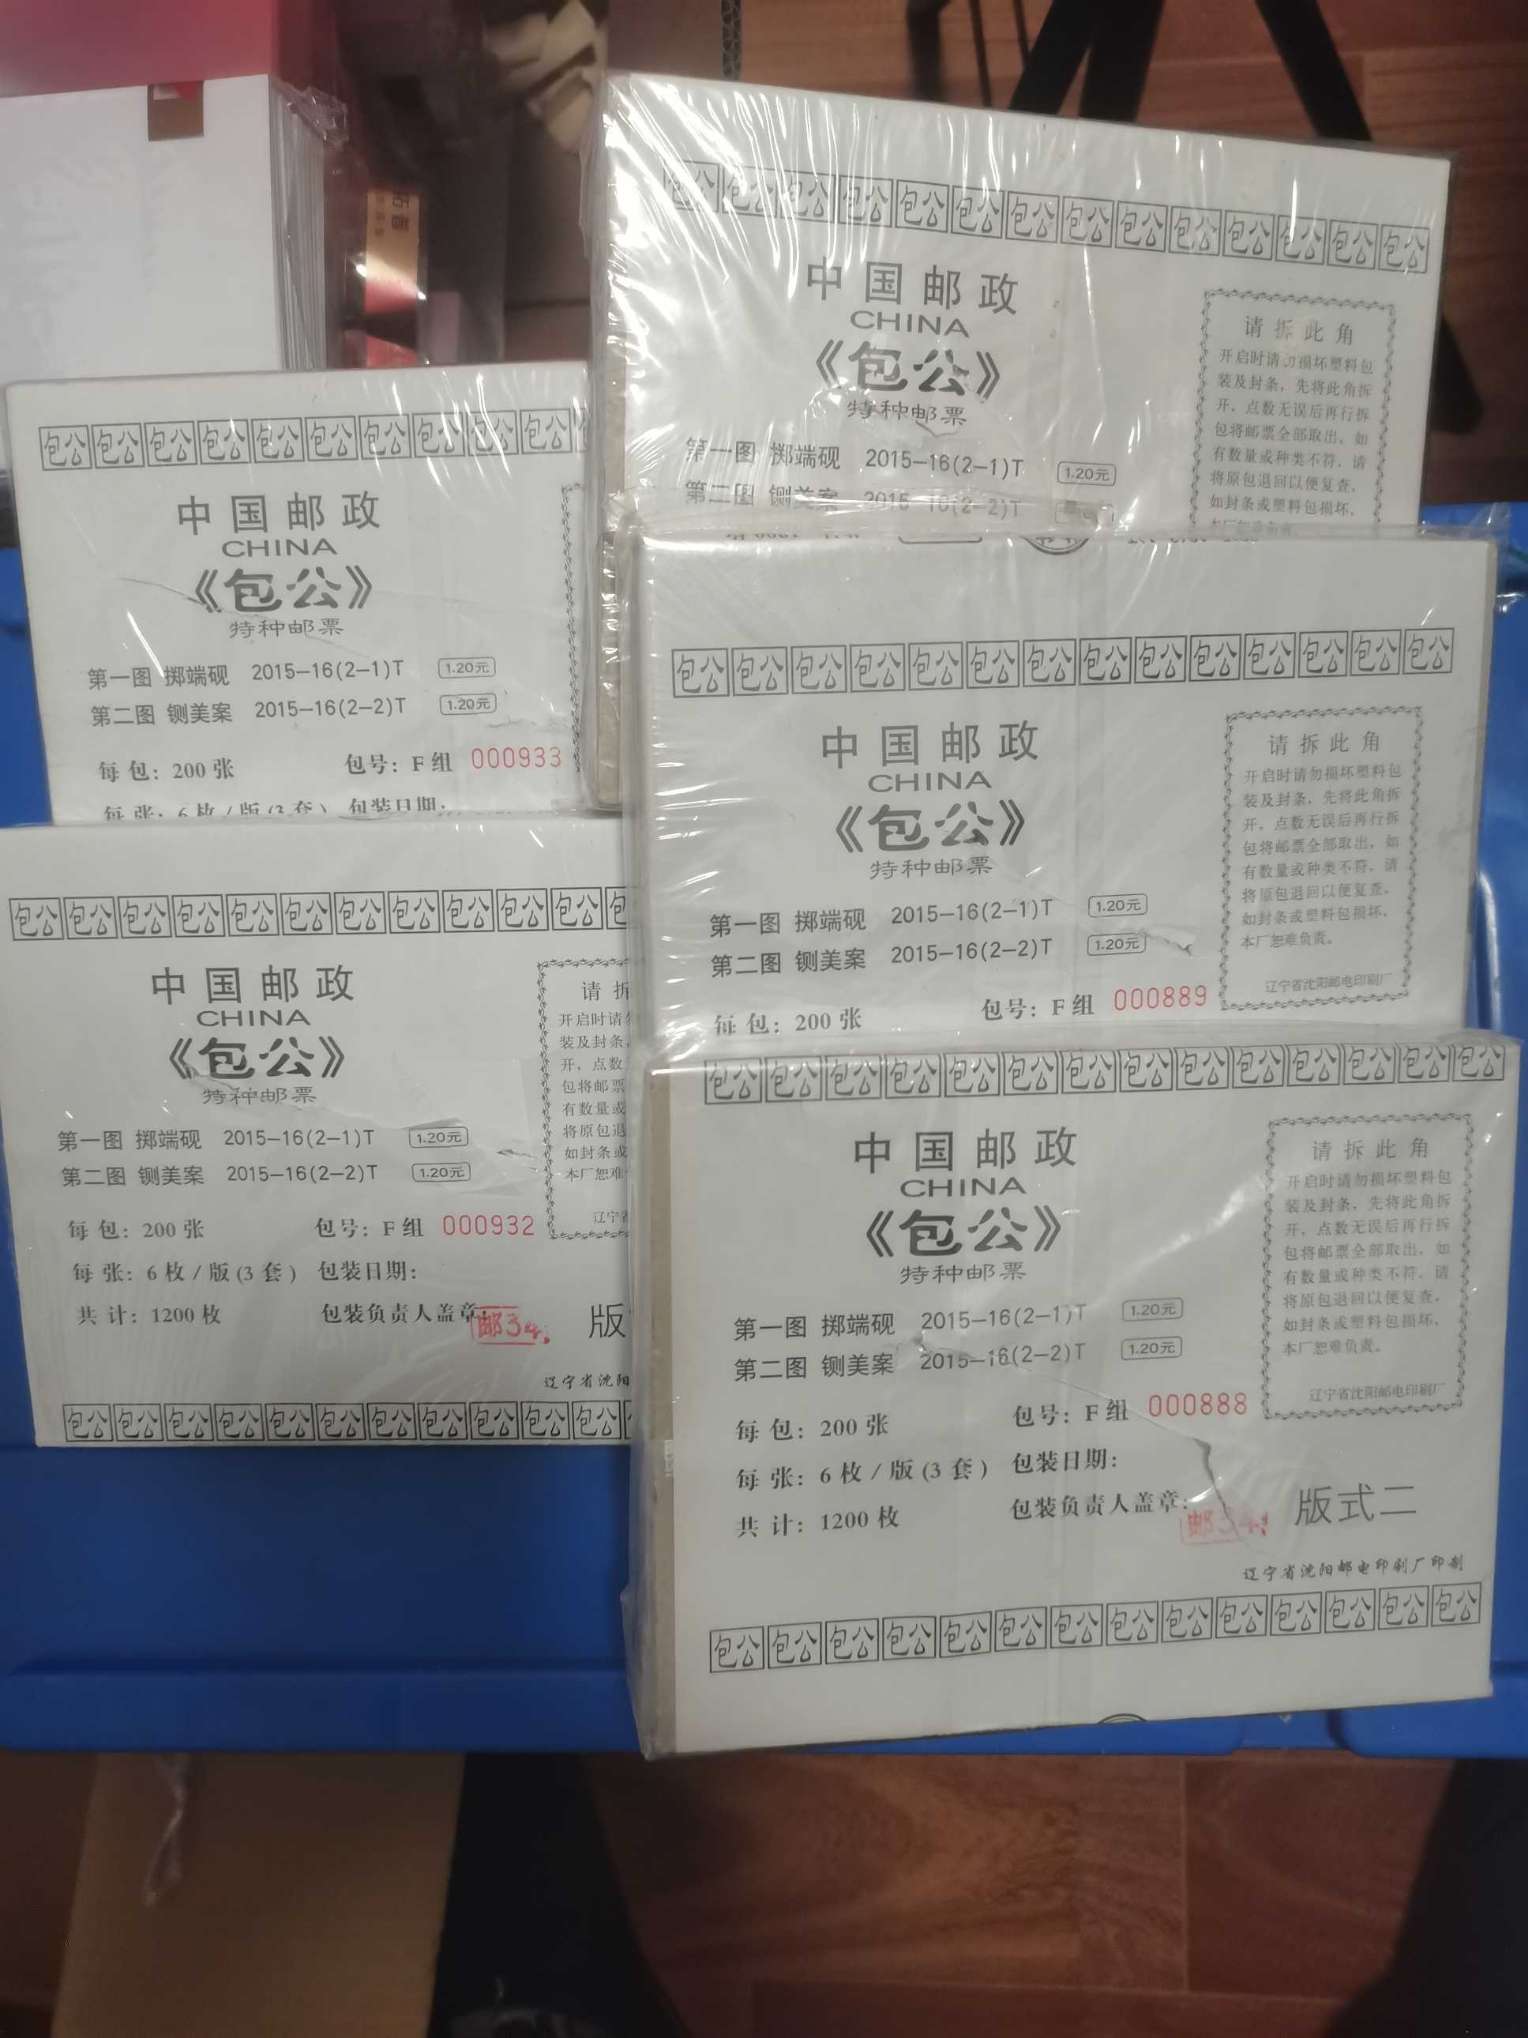 包公 包公 包公 包公 包公 包公 包公 包公 包公 包公 包公 包公 包公 包公
中国邮政
CHINA
《包公》
特种邮票
第一图 掷端砚 2015-16(2-1)T 1.20元
第二图 铡美案 2015-16(2-2)T
请拆此角
开启时请勿损坏塑料包
装及封条，先将此角拆
开，点数无误后再行拆
包将邮票全部取出，如
有数量或种类不符，请
将原包退回以便复查，
如封条或塑料包损坏，
本厂恕难负责。
包公 包公 包公 包公 包公 包公 包公 包公 包公 包公
中国邮政
CHINA
《包公》
特种邮票
第一图 掷端砚 2015-16(2-1)T 1.20元
第二图 铡美案 2015-16(2-2)T 1.20元
每 包：200 张 包号：F 组 000933
每 张：6 枚 / 版 (3 套) 包装日期：
包公 包公 包公 包公 包公 包公 包公 包公 包公 包公 包公 包公 包公 包公
中国邮政
CHINA
《包公》
特种邮票
第一图 掷端砚 2015-16(2-1)T 1.20元
第二图 铡美案 2015-16(2-2)T 1.20元
每 包：200 张 包号：F 组 000889
请拆此角
开启时请勿损坏塑料包
装及封条，先将此角拆
开，点数无误后再行拆
包将邮票全部取出，如
有数量或种类不符，请
将原包退回以便复查，
如封条或塑料包损坏，
本厂恕难负责。
辽宁省沈阳邮电印刷厂
包公 包公 包公 包公 包公 包公 包公 包公 包公 包公 包公 包
中国邮政
CHINA
《包公》
特种邮票
第一图 掷端砚 2015-16(2-1)T 1.20元
第二图 铡美案 2015-16(2-2)T 1.20元
每 包：200 张 包号：F 组 000932
每 张：6 枚 / 版 (3 套) 包装日期：
共 计：1200 枚 包装负责人盖章： 邮34
版
请拆
开启时请勿
装及封条，
开，点数
包将邮票
有数量或
将原包退
如封条或
本厂恕难
辽宁省
辽宁省沈阳
包公 包公 包公 包公 包公 包公 包公 包公 包公 包公 包公
包公 包公 包公 包公 包公 包公 包公 包公 包公 包公 包公 包公 包公 包公
中国邮政
CHINA
《包公》
特种邮票
第一图 掷端砚 2015-16(2-1)T 1.20元
第二图 铡美案 2015-16(2-2)T 1.20元
每 包：200 张 包号：F 组 000888
每 张：6 枚 / 版 (3 套) 包装日期：
共 计：1200 枚 包装负责人盖章： 邮34
版式二
请拆此角
开启时请勿损坏塑料包
装及封条，先将此角拆
开，点数无误后再行拆
包将邮票全部取出，如
有数量或种类不符，请
将原包退回以便复查，
如封条或塑料包损坏，
本厂恕难负责。
辽宁省沈阳邮电印刷厂
辽宁省沈阳邮电印刷厂印制
包公 包公 包公 包公 包公 包公 包公 包公 包公 包公 包公 包公 包公 包公